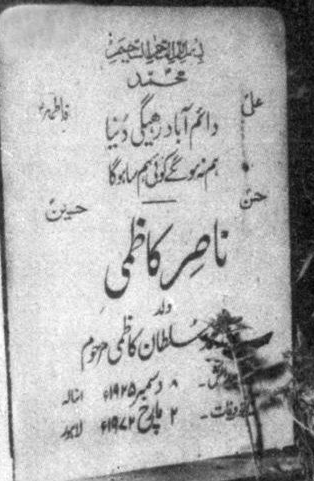 بسم اللہ الرحمن الرحیم
محمدؐ
علیؑ فاطمہؑ
دائم آباد رہیگی دُنیا
ہم نہ ہونگے کوئی ہم سا ہوگا
حسنؑ حسینؑ
ناصِر کاظمی
ولد
سُلطان کاظمی مرحوم
۸ دسمبر ۱۹۲۵ء انبالہ
وفات - ۲ مارچ ۱۹۷۲ء لاہور